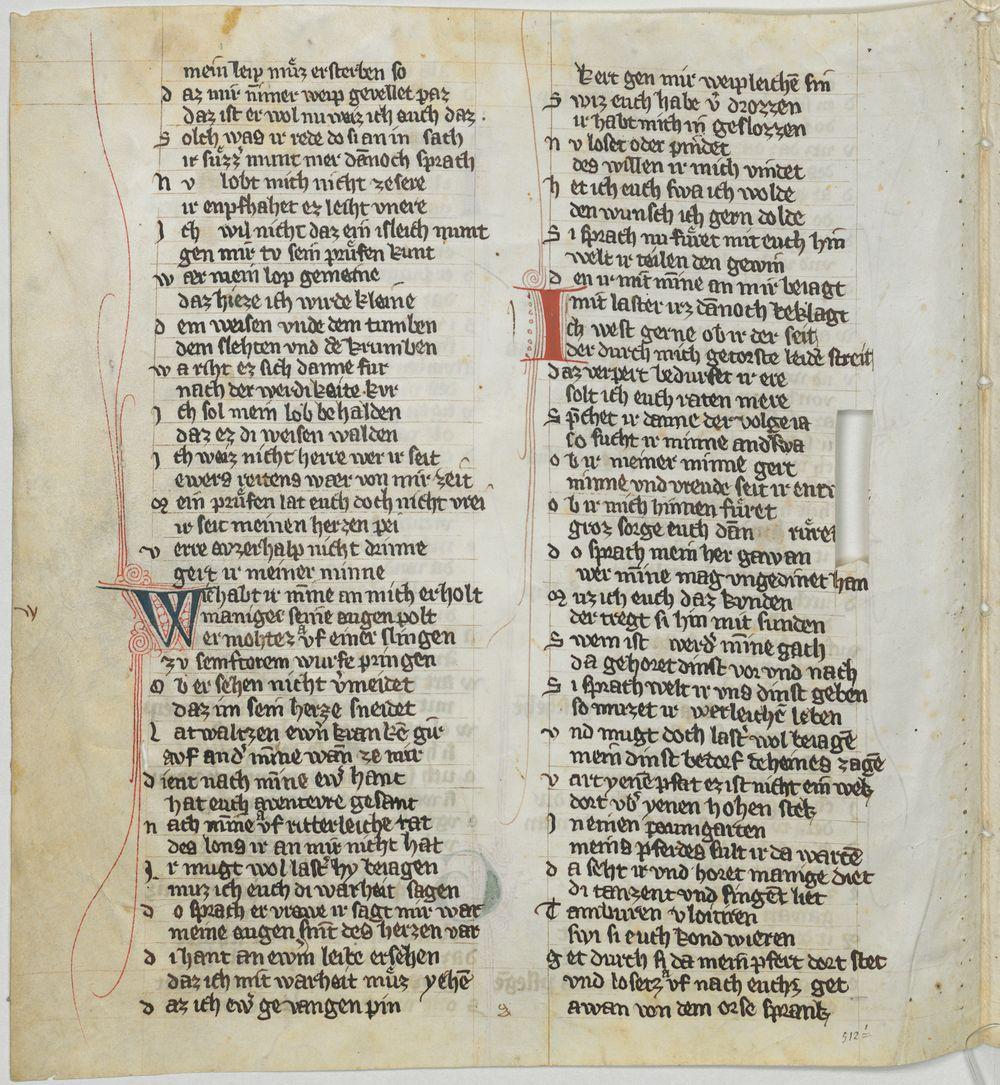 mein leip mu̇z ersterben so
d az mir nim̄er weip gevellet paz
daz ist er wol nu waiz ich auch daz .
S olch was ir rede do si an in sach
ir su̇zz̾ munt mer dānoch sprach
N v lobt mich nicht ze sere
ir enpfhahet ez leiht vnere
J ch wil nicht daz ein isleich munt
gen mir tv sein pru̇fen kunt
w ær mein lop gemeine
daz hieze ich wurde kleine
d em weisen vnde dem tumben
dem slehten vnd dē krumben
w a riht ez sich danne fur
nach der werdikaite kvr
i ch sol mein lob behalden
daz ez di weisen walden
i ch waiz nicht herre wer ir seit
ewers reitens wær von mir zeit
M ein pru̇fen lat euch doch nicht vrei
ir seit meinen herzen pei
v erre auzerhalp nicht drinne
gert ir meiner minne
W ie habt ir mīne an mich erholt
maniger seine augen polt
er mohtez vf einer slingen
zv senfterem wurfe pringen
O b er sehen nicht v̾meidet
daz im sein herze sneidet
L at waltzen ewr̄n krankē gir
auf and̾ mīne wān ze mir
d ient nach mīne ew̾ hant
hat euch aventevre gesant
n ach mīne vf ritterleiche tat
des lons ir an mir nicht hat
J r mugt wol last̾ hy beiagen
muz ich euch di warheit sagen
d o sprach er vrawe ir sagt mir war
meine augen sint des herzen var
d i hant an ewrm leibe ersehen
daz ich mit warheit mu̇z yehē
d az ich ew̾ gevangen pin
kert gen mir weipleichē sin
S wiz euch habe v̾drozzen
ir habt mich in geslozzen
n v loset oder pindet
des willen ir mich vindet
h et ich euch swa ich wolde
den wunsch ich gern dolde
S i sprach nu fu̇ret mit euch hin
welt ir teilen den gewin
d en ir mit mīne an mir beiagt
mit laster irz dānoch beklagt
I ch west gerne ob ir der seit
der durch mich getorste leidē streit
daz verpert bedurfet ir ere
solt ich euch raten mere
S p̄chet ir danne der volge ia
so sucht ir minne and̾swa
o b ir meiner minne gert
minne vnd vreude seit ir ent
o b ir mich hinnen fu̇ret
groz sorge euch dān ru̇ret
d o sprach mein her gawan
wer mīne mag vngedinet han
M uz ich euch daz kvnden
der tregt si hin mit sunden
S wem ist werd̾ mīne gach
da gehoret dinst vor vnd nach
S i sprach welt ir vns dinst geben
so muzet ir werleichē leben
v nd mugt doch last̾ wol beiagē
mein dinst bedorf deheines zagē
v art yenē pfat ez ist nicht ein wek
dort vb̾ yenen hohen stek
J n einen paumgarten
meins pferdes sult ir da wartē
d a seht ir vnd horet manige diet
di tanzent vnd singēt liet
T amburen vloitiren
swi si euch kondwieren
g et durch si da mein pfert dort stet
vnd losetz vf nach euchs get
awan von dem orse sprank
512